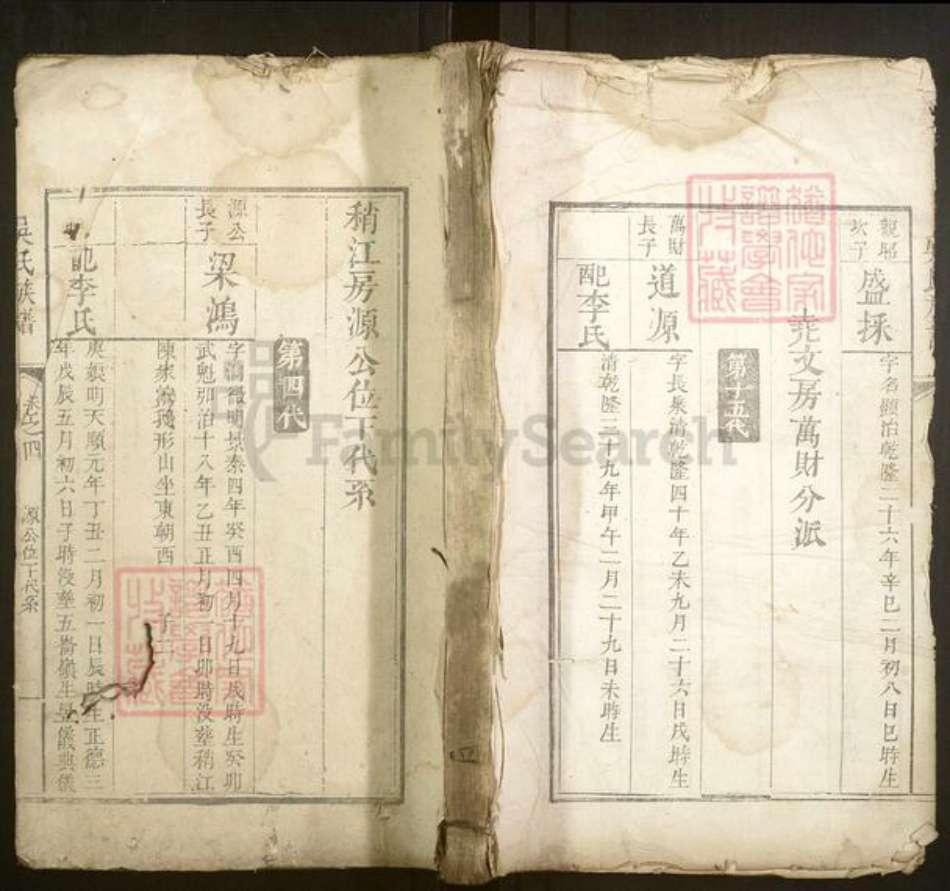 觀照
次子
盛採
字名顯治乾隆二十六年辛巳二月初八日巳時生
堯文房萬財分派
第十五代
萬財
長子
道源
字長泉清乾隆四十年乙未九月二十六日戌時生
配李氏
清乾隆三十九年甲午二月二十九日未時生
稍江房源公位下代系
第四代
源公
長子
梁鴻
明景泰四年癸酉四月十九日戌時生癸卯
武魁弘治十八年乙丑正月初一日卯時没塟稍江
陳家灣形山坐東朝西 子二
配李氏
庚娘明天順元年丁丑二月初一日辰時生正德三
年戊辰五月初六日子時没塟五崙嶺生昱儀典儀
吳氏族譜
卷之四
源公位下代系
FamilySearch